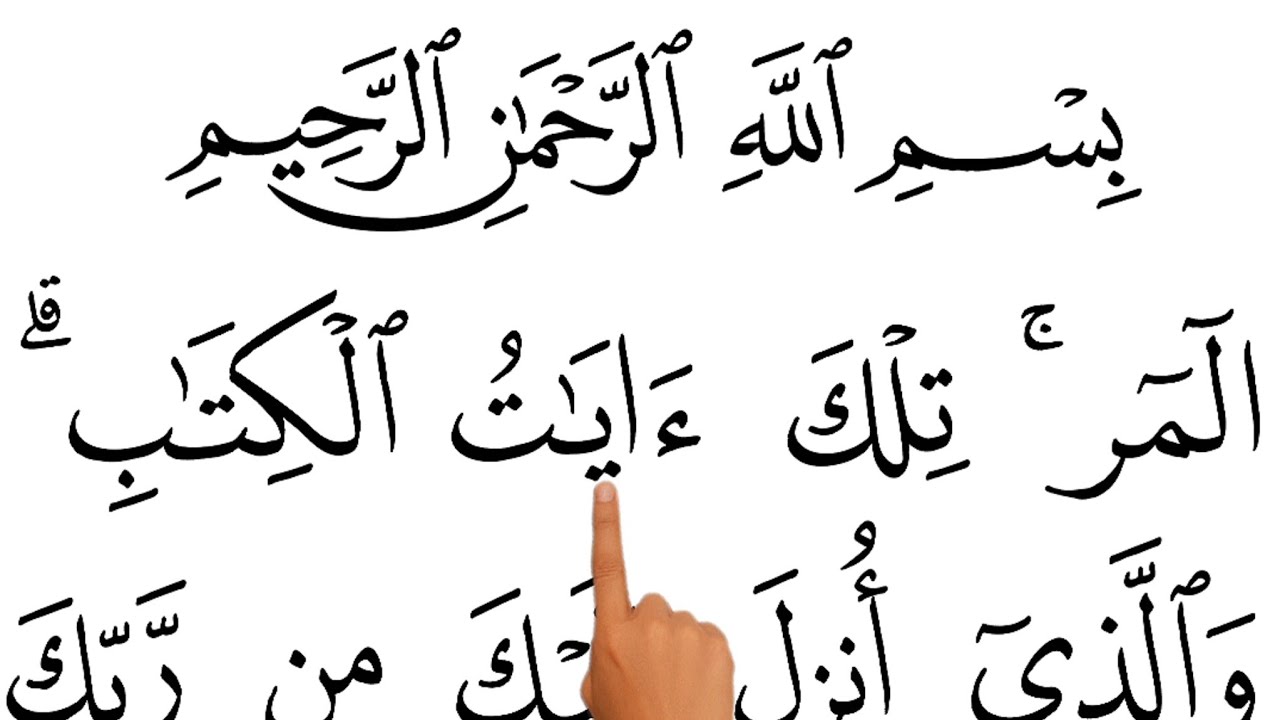 بِسۡمِ ٱللَّهِ ٱلرَّحۡمَٰنِ ٱلرَّحِيمِ
الٓمٓرۚ تِلۡكَ ءَايَٰتُ ٱلۡكِتَٰبِۗ
وَٱلَّذِيٓ أُنزِلَ مِن رَّبِّكَ